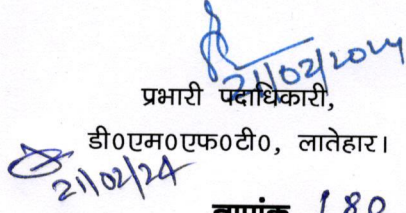 21/02/2024
प्रभारी पदाधिकारी,
डी०एम०एफ०टी०, लातेहार।
21/02/24
ज्ञापांक 180